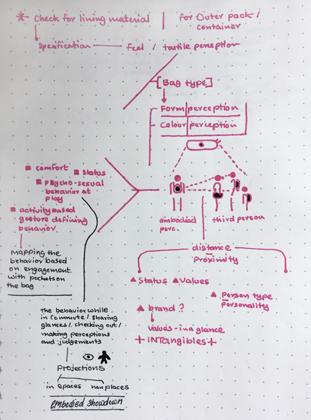 * Check for lining material
for Outer pack /
container
Specification — feel / tactile perception
[Bag type]
Form/perception
Colour/perception
comfort
status
Psycho-sexual
behavior at
play
activity based
gesture defining
behavior.
Mapping the
behavior based
on engagement
with pockets on
the bag
embodied
perc.
third person
distance
Proximity
Status
Values
Person type
Personality
brand ?
values-in a glance
+ INTangibles +
The behavior while
in commute / sharing
glances / checking out /
making perceptions
and judgements
Projections
in Spaces
nonplaces
embodied showdown